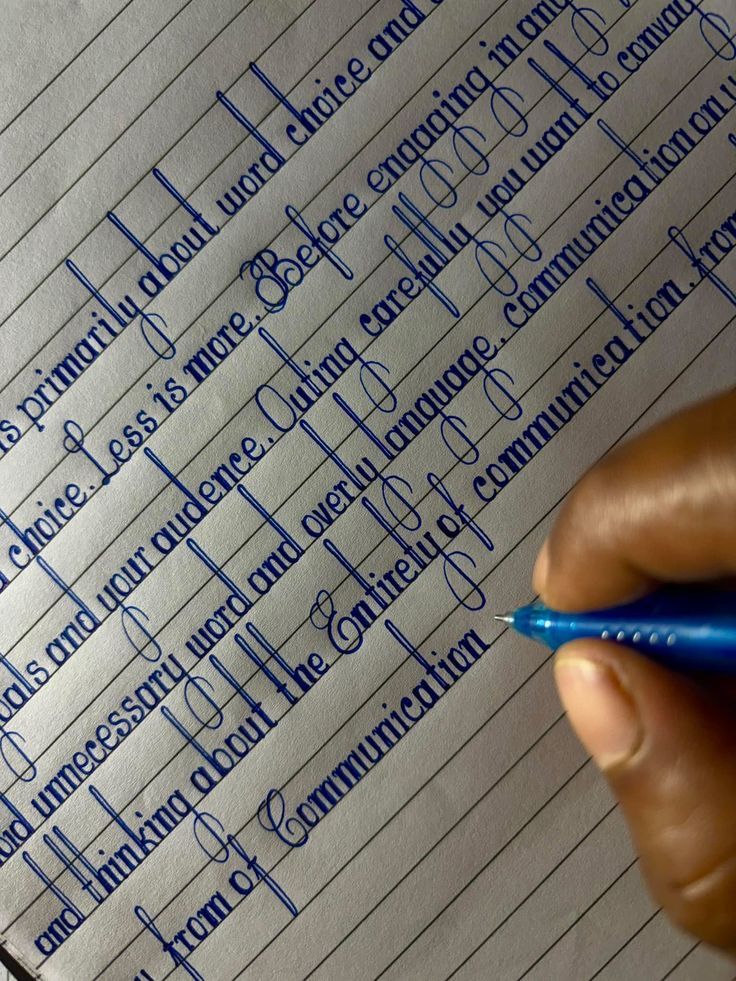 is primarily about word choice and
choice. Less is more. Before engaging in any
and your audence. Outing carefully you want to convay
unnecessary word and overly language. communication on
and thinking about the Entirety of communication. from
from of Communication